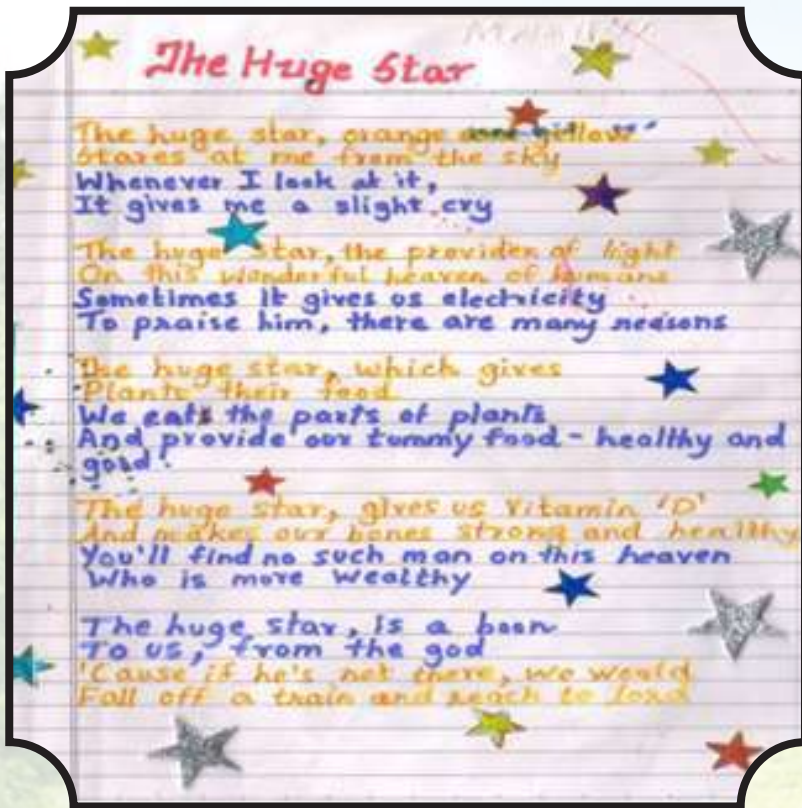 The Huge Star
The huge star, orange and yellow
Stares at me from the sky
Whenever I look at it,
It gives me a slight cry
The huge star, the provider of light
On this wonderful heaven of humans
Sometimes it gives us electricity
To praise him, there are many reasons
The huge star, which gives
Plants their food
We eats the parts of plants
And provide our tummy food - healthy and
good.
The huge star, gives us Vitamin 'D'
And makes our bones strong and healthy
You'll find no such man on this heaven
Who is more wealthy
The huge star, is a boon
To us, from the god
'Cause if he's not there, we would
Fall off a train and reach to